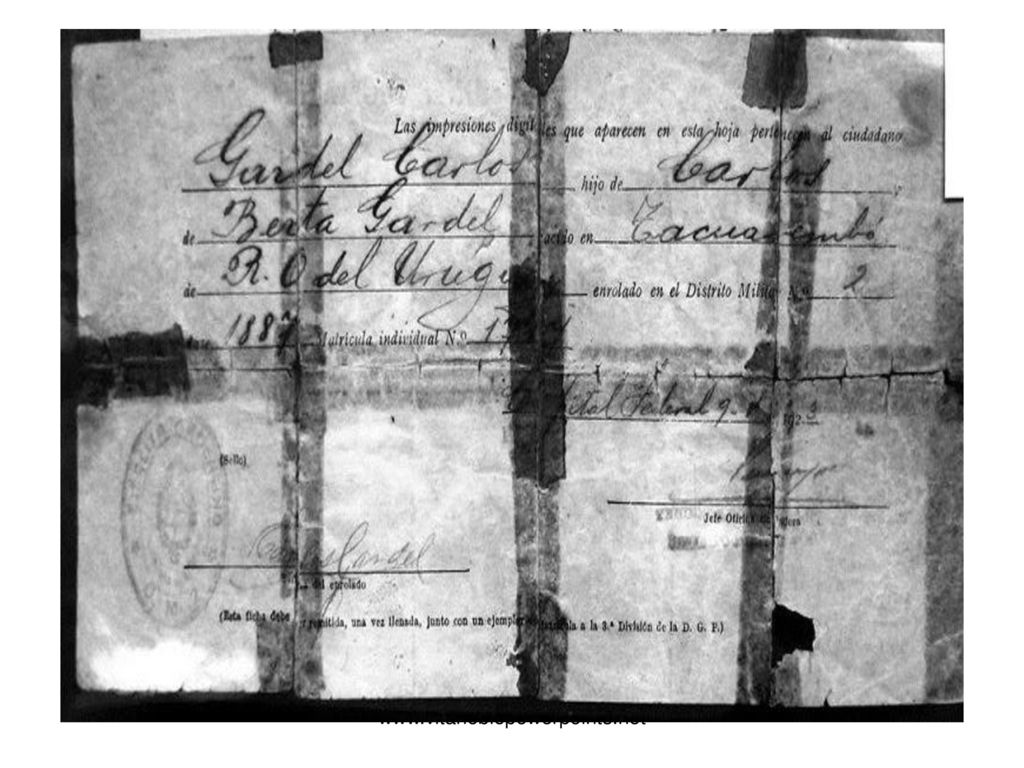 Las impresiones digitales que aparecen en esta hoja pertenecen al ciudadano
Gardel Carlos hijo de Carlos y
de Berta Gardel nacido en Tacuarembó
de R. O del Urugu enrolado en el Distrito Militar N.o 2
clase 1887 Matrícula individual N.o
Capital Federal 9 192
(Sello)
Jefe Oficina
Carlos Gardel
del enrolado
(Esta ficha debe ser remitida, una vez llenada, junto con un ejemplar a la 3.ª División de la D. G. P.)